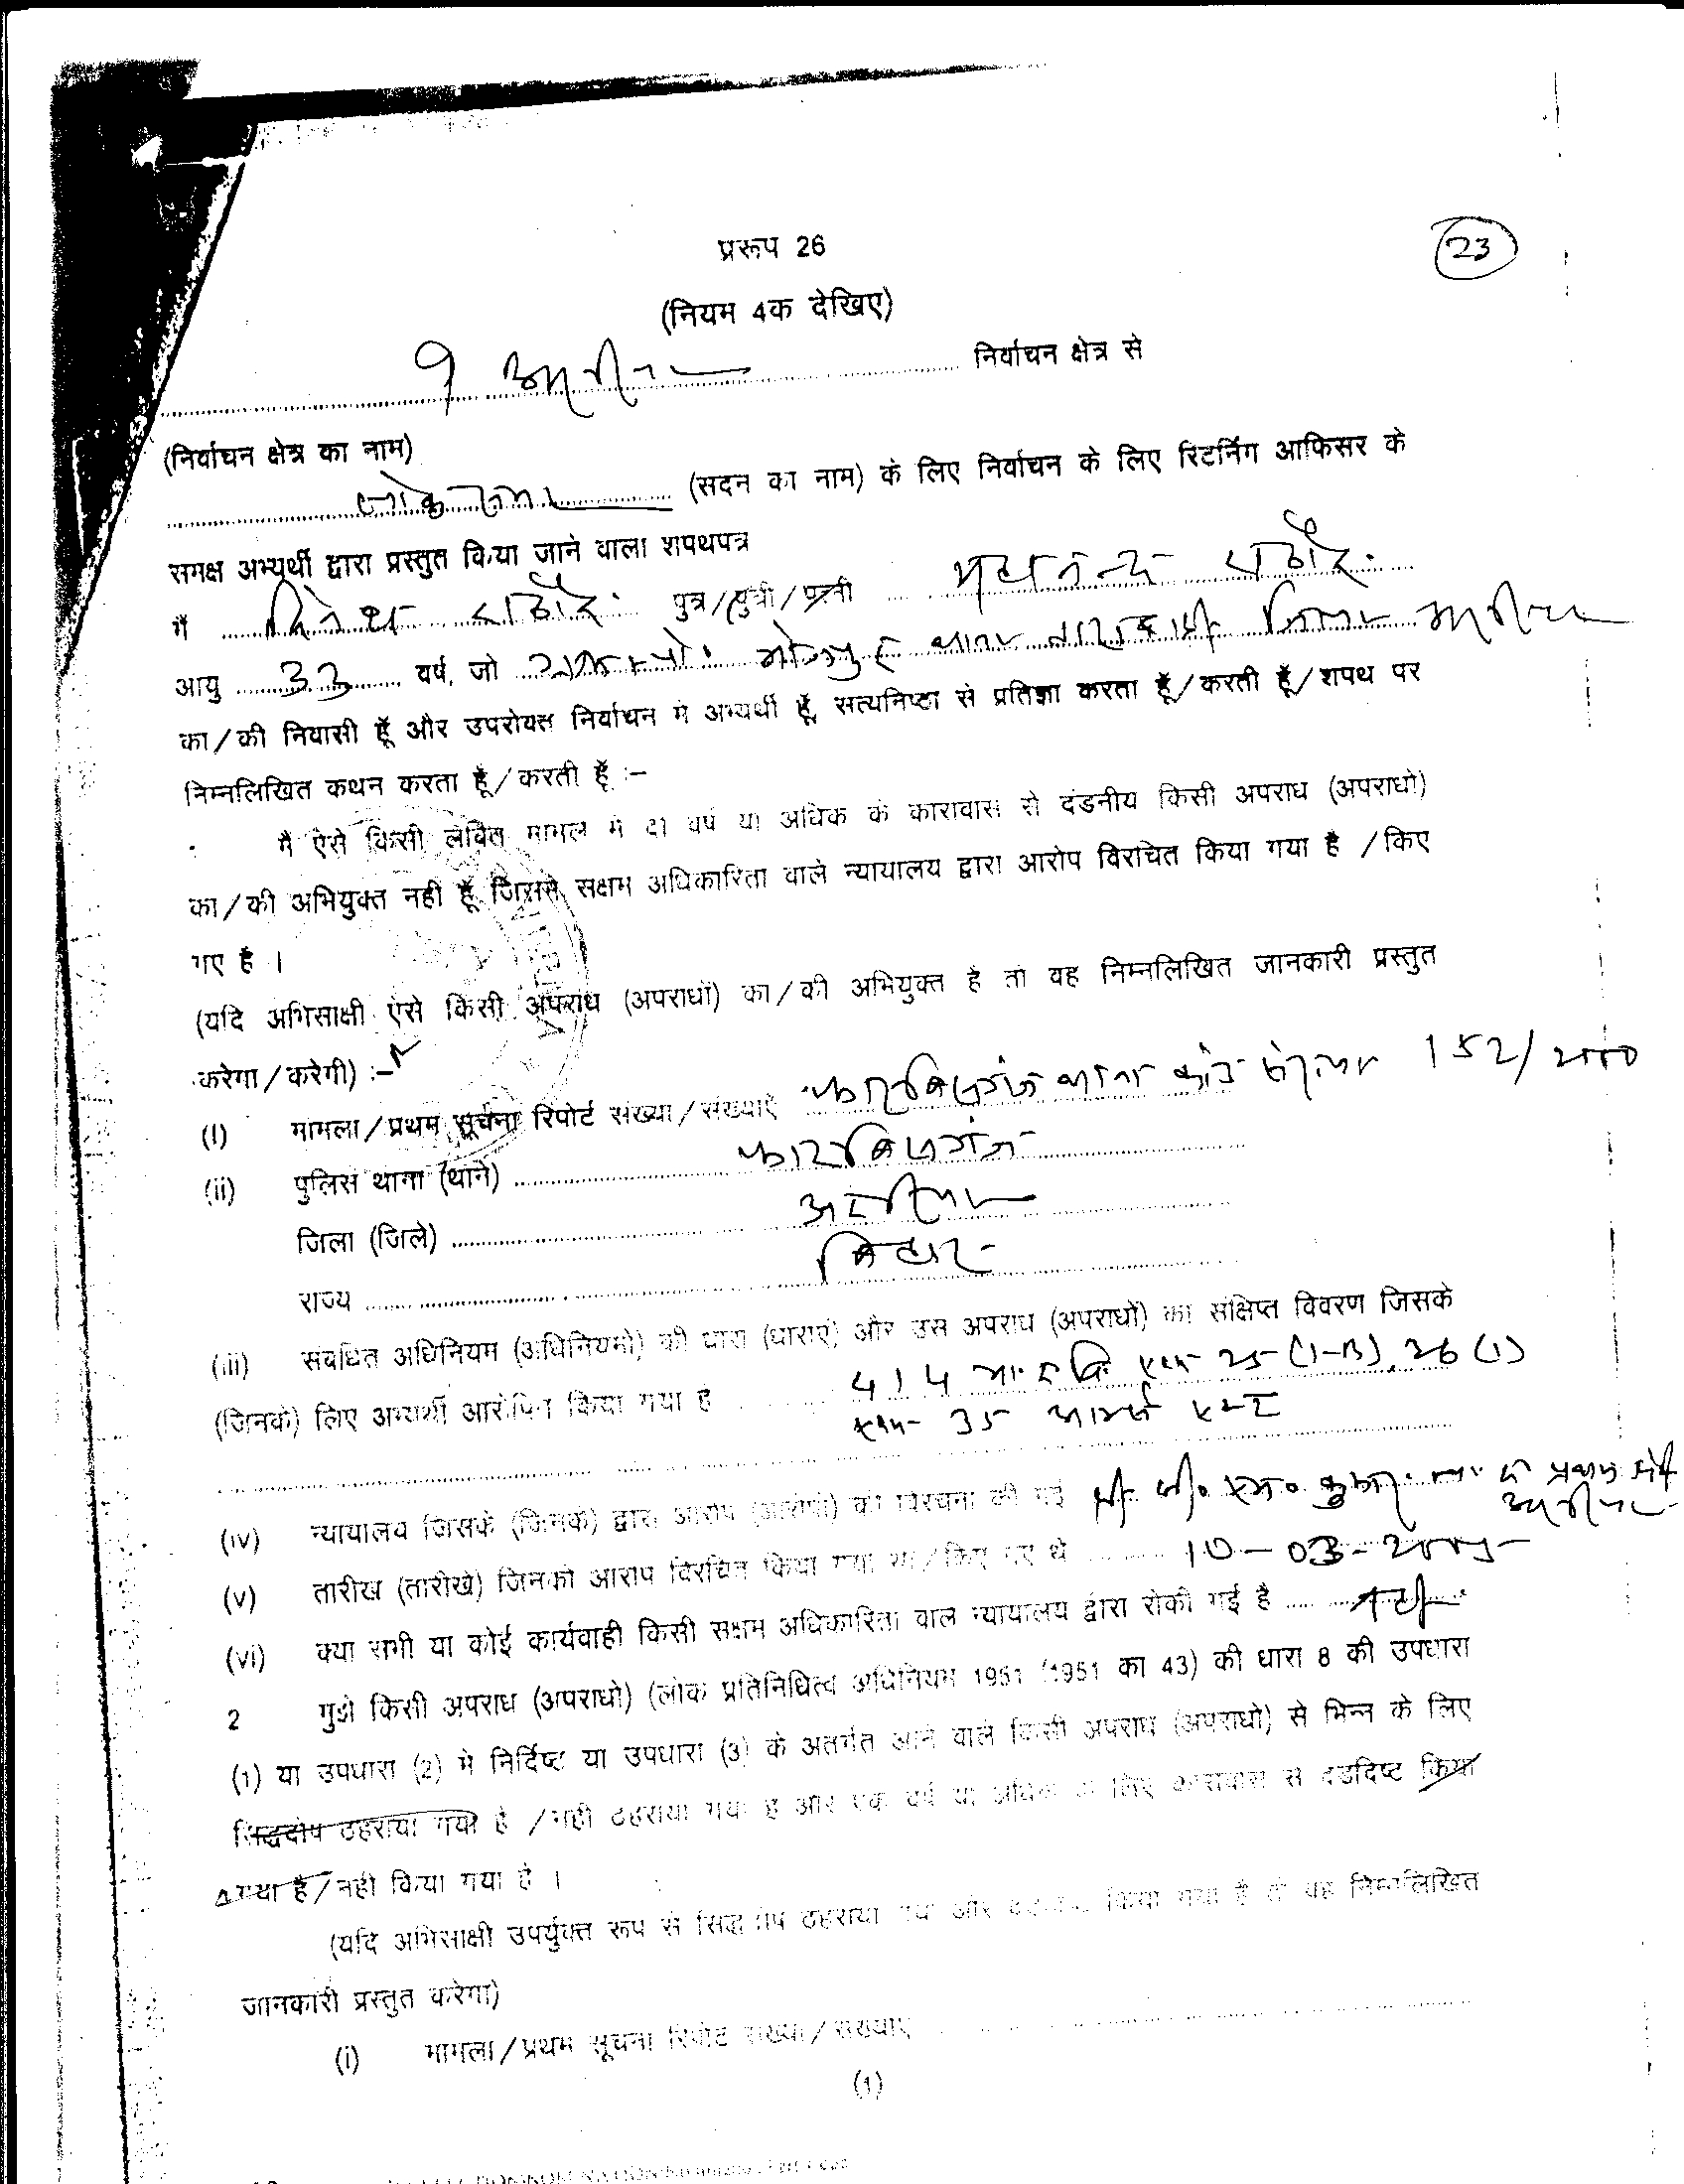 23
प्ररूप 26
(नियम 4क देखिए)
9 अररिया निर्वाचन क्षेत्र से
(निर्वाचन क्षेत्र का नाम)
लोक सभा (सदन का नाम) के लिए निर्वाचन के लिए रिटर्निंग आफिसर के
समक्ष अभ्यर्थी द्वारा प्रस्तुत किया जाने वाला शपथपत्र
मैं दिनेश राठौर पुत्र/पुत्री/पत्नी राठौर
आयु 33 वर्ष, जो जिला अररिया
का/की निवासी हूँ और उपरोक्त निर्वाचन में अभ्यर्थी हूँ, सत्यनिष्ठा से प्रतिज्ञा करता हूँ/करती हूँ/शपथ पर
निम्नलिखित कथन करता हूँ/करती हूँ :–
मैं ऐसे किसी लंबित मामले में दो वर्ष या अधिक के कारावास से दंडनीय किसी अपराध (अपराधों)
का/की अभियुक्त नहीं हूँ जिससे सक्षम अधिकारिता वाले न्यायालय द्वारा आरोप विरचित किया गया है /किए
गए हैं ।
(यदि अभिसाक्षी ऐसे किसी अपराध (अपराधों) का/की अभियुक्त है तो वह निम्नलिखित जानकारी प्रस्तुत
करेगा/करेगी) :–
(i) मामला/प्रथम सूचना रिपोर्ट संख्या/संख्याएँ फारबिसगंज थाना कांड संख्या 152/2000
(ii) पुलिस थाना (थाने) फारबिसगंज
जिला (जिले) अररिया
राज्य बिहार
(iii) संबंधित अधिनियम (अधिनियमों) की धारा (धाराएं) और उस अपराध (अपराधों) का संक्षिप्त विवरण जिसके
(जिनके) लिए अभ्यर्थी आरोपित किया गया है 414 भा. द. वि. एवं 25 (1-B), 26 (1)
एवं 35 आर्म्स एक्ट
(iv) न्यायालय जिसके (जिनके) द्वारा आरोप (आरोपों) की विरचना की गई कुमार प्रथम श्रेणी
अररिया
(v) तारीख (तारीखें) जिनको आरोप विरचित किया गया था/किए गए थे 10-03-2005
(vi) क्या सभी या कोई कार्यवाही किसी सक्षम अधिकारिता वाले न्यायालय द्वारा रोकी गई है नहीं
2 मुझे किसी अपराध (अपराधों) (लोक प्रतिनिधित्व अधिनियम 1951 (1951 का 43) की धारा 8 की उपधारा
(1) या उपधारा (2) में निर्दिष्ट या उपधारा (3) के अंतर्गत आने वाले किसी अपराध (अपराधों) से भिन्न के लिए
सिद्धदोष ठहराया गया है /नहीं ठहराया गया है और एक वर्ष या अधिक के लिए कारावास से दंडदिष्ट किया
गया है/नहीं किया गया है ।
(यदि अभिसाक्षी उपर्युक्त रूप से सिद्धदोष ठहराया गया और किया गया है तो वह निम्नलिखित
जानकारी प्रस्तुत करेगा)
(i) मामला/प्रथम सूचना रिपोर्ट संख्या/संख्याएं
(1)